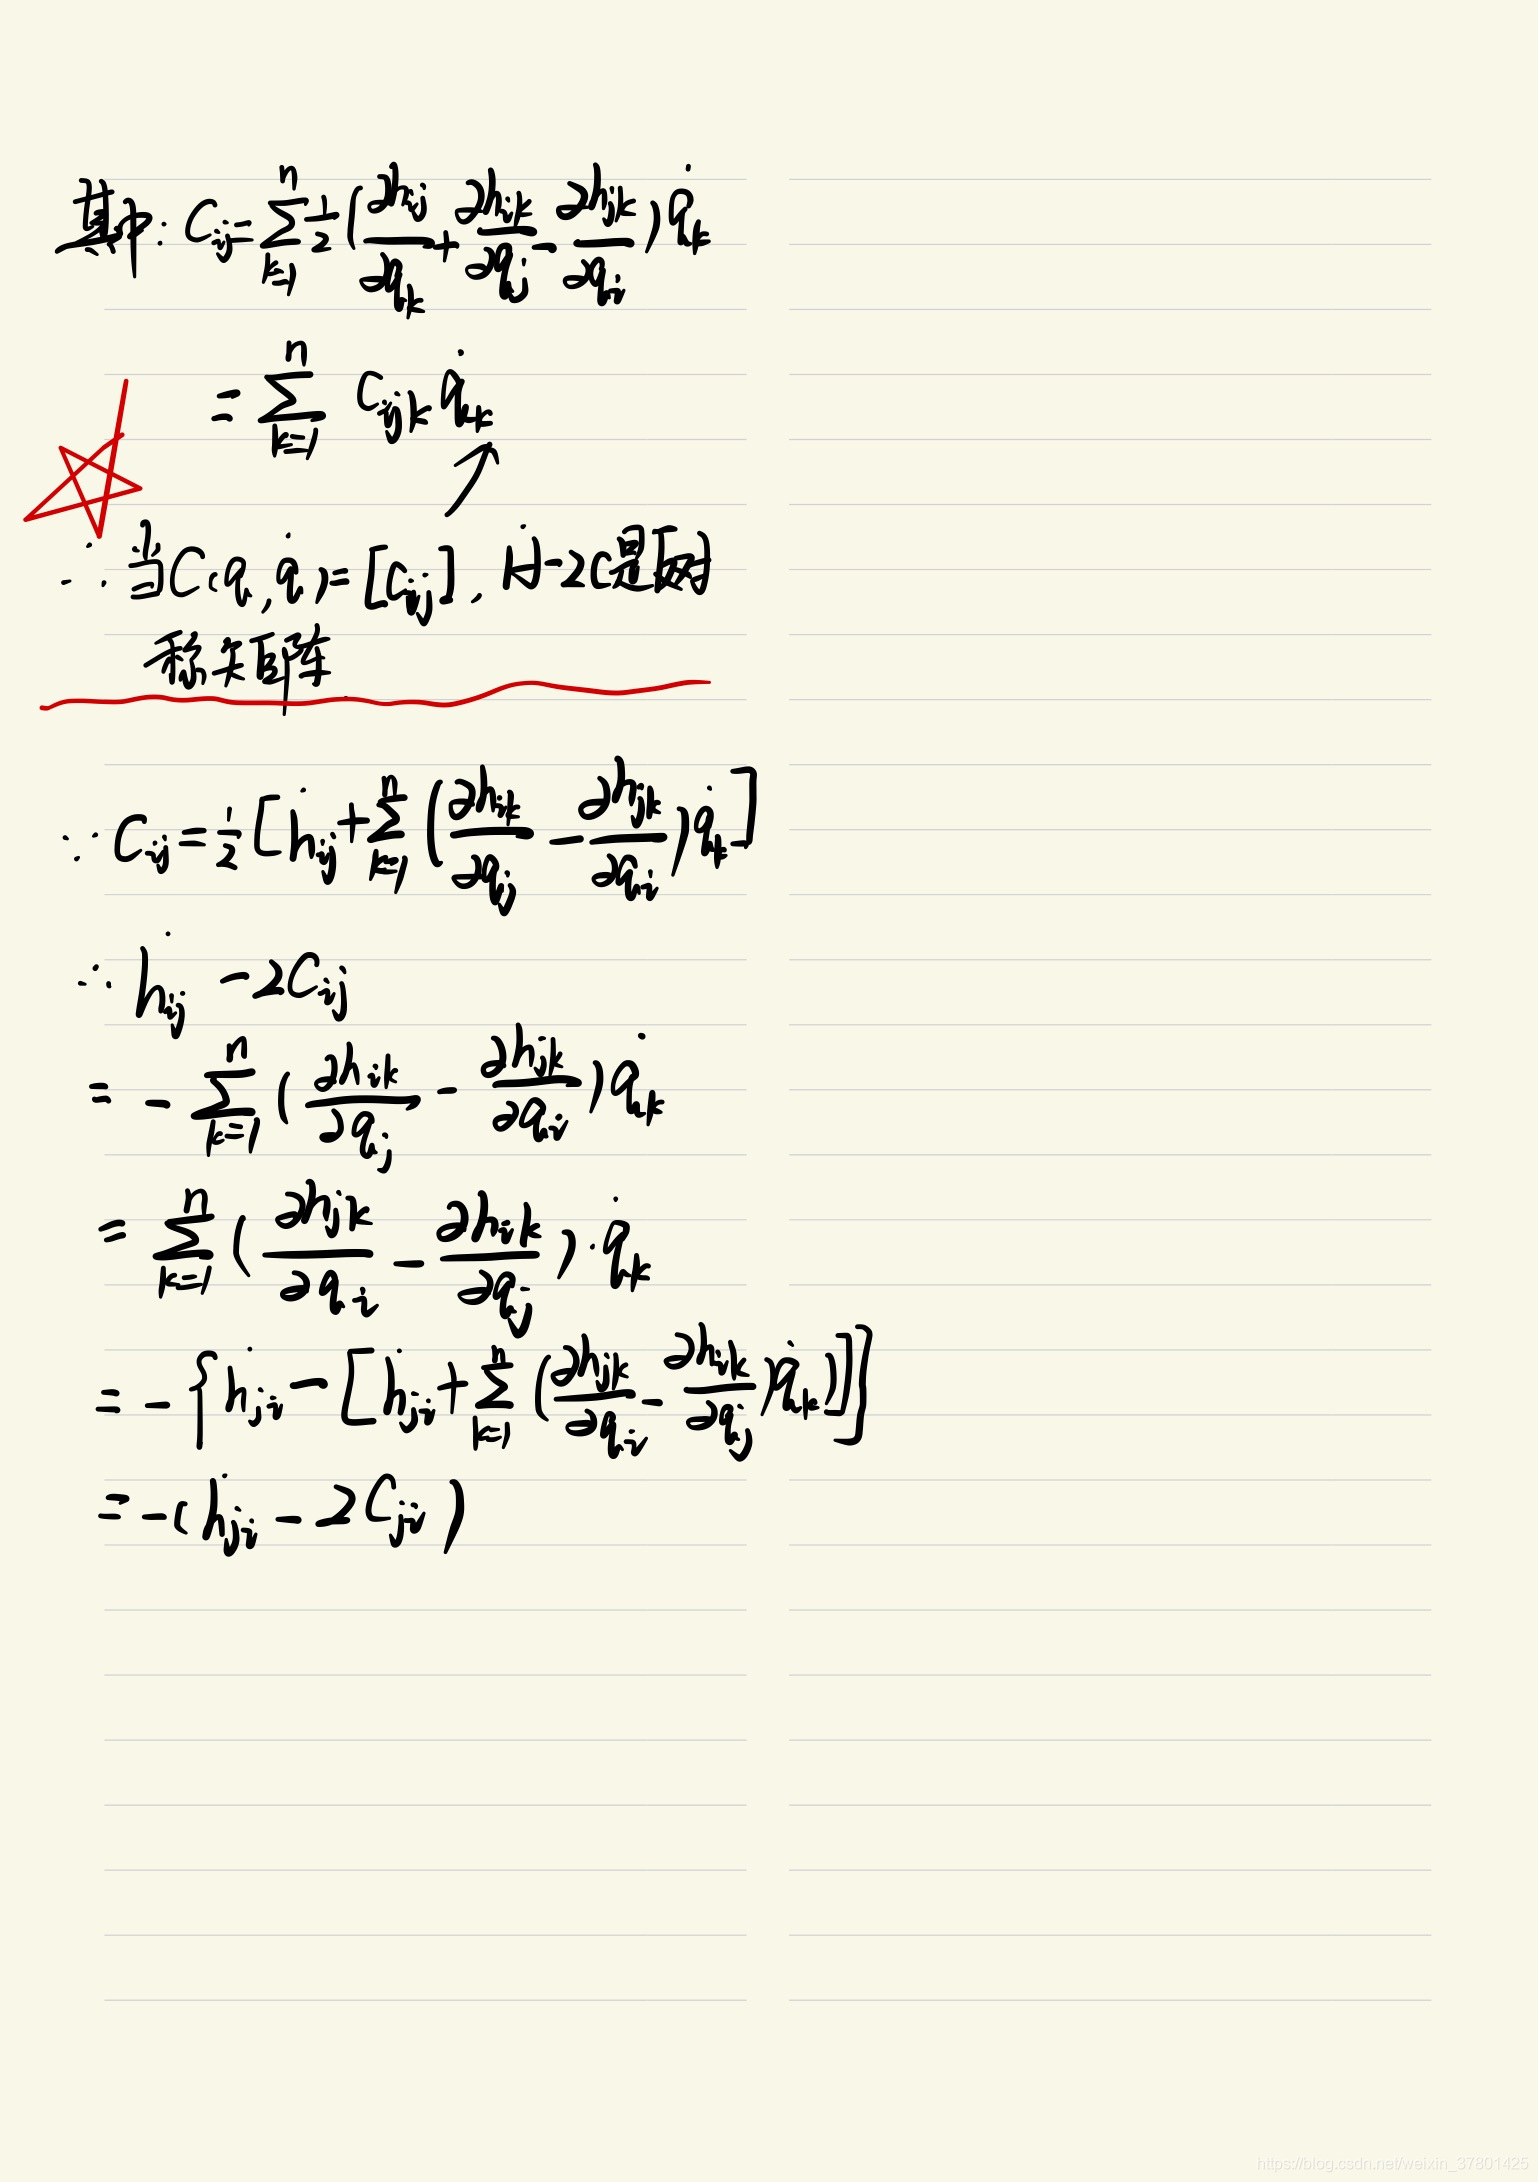 其中: C_ij = ∑_{k=1}^{n} 1/2 (∂h_ij/∂q_k + ∂h_ik/∂q_j - ∂h_jk/∂q_i) q̇_k
= ∑_{k=1}^{n} C_ijk q̇_k
∴ 当C(q, q̇) = [C_ij], Ḣ-2C是反对
称矩阵
∵ C_ij = 1/2 [ḣ_ij + ∑_{k=1}^{n} (∂h_ik/∂q_j - ∂h_jk/∂q_i) q̇_k]
∴ ḣ_ij - 2C_ij
= - ∑_{k=1}^{n} (∂h_ik/∂q_j - ∂h_jk/∂q_i) q̇_k
= ∑_{k=1}^{n} (∂h_jk/∂q_i - ∂h_ik/∂q_j) · q̇_k
= - {ḣ_ji - [ḣ_ji + ∑_{k=1}^{n} (∂h_jk/∂q_i - ∂h_ik/∂q_j) q̇_k)]}
= -(ḣ_ji - 2C_ji)
https://blog.csdn.net/weixin_37801425